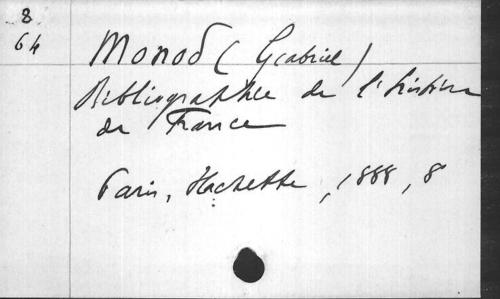 8
64
Monod (Gabriel)
Bibliographie de l'histoire
de France
Paris, Hachette, 1888, 8